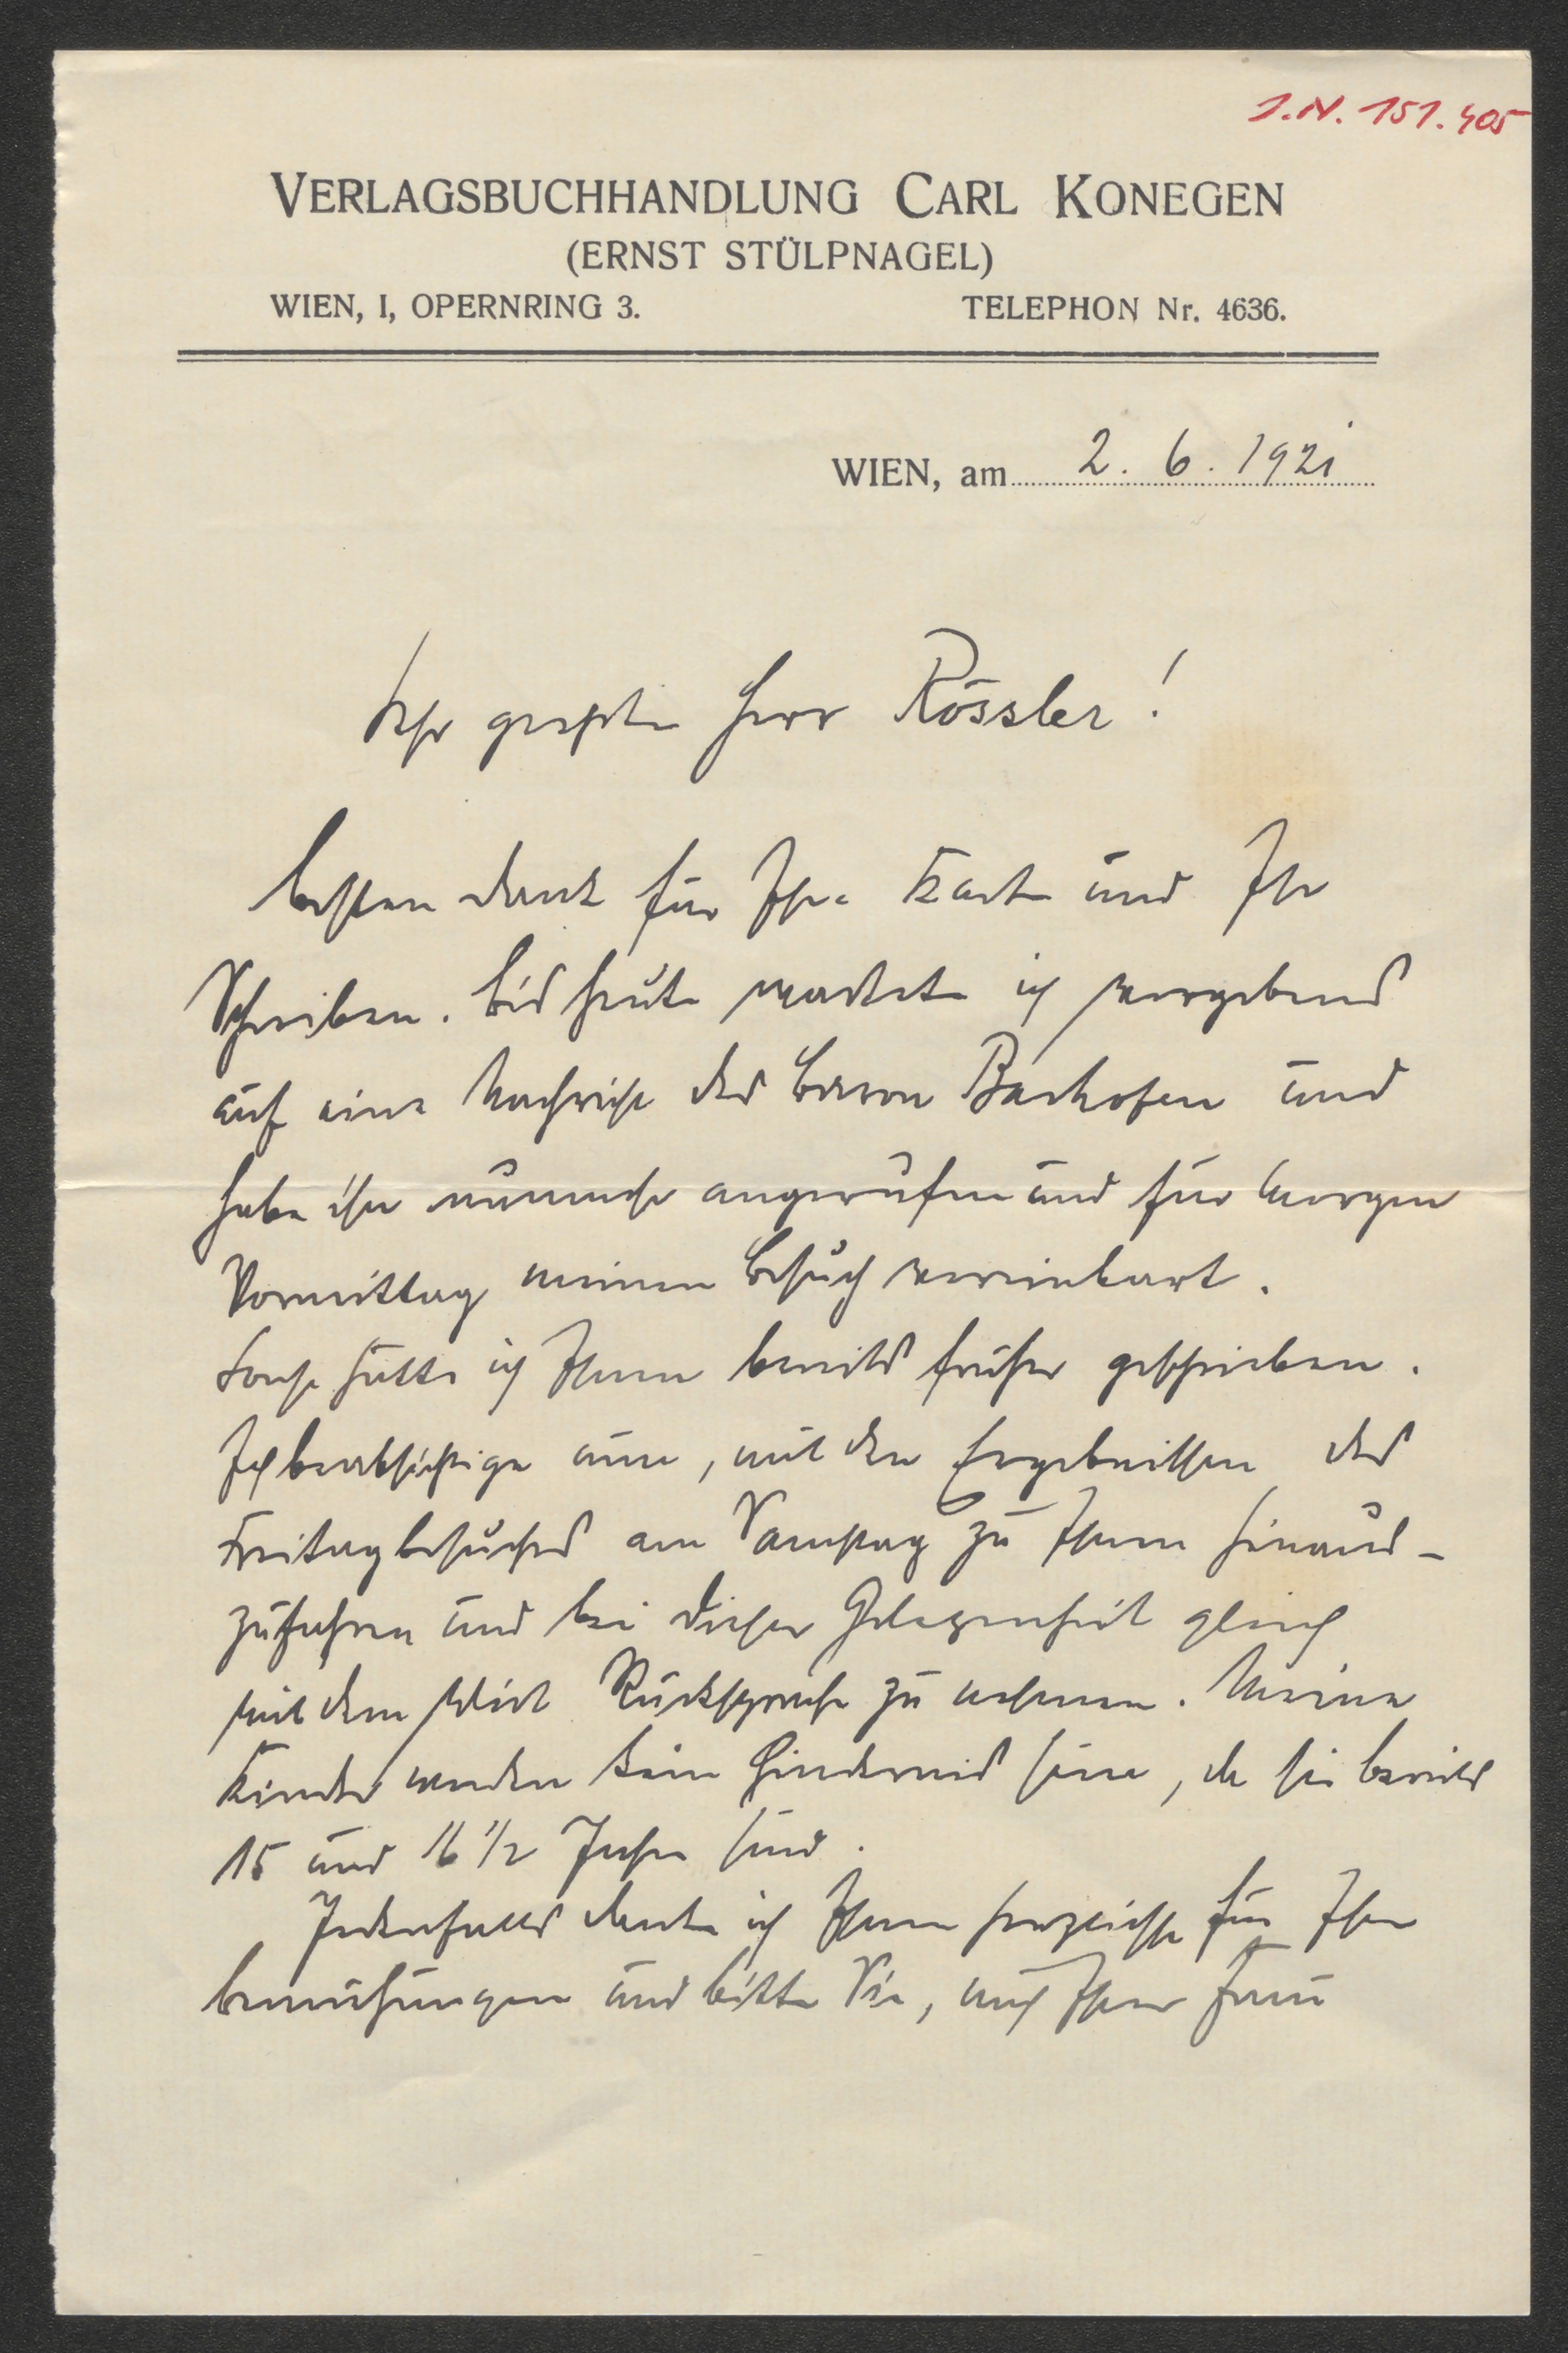 J.N. 151.405
VERLAGSBUCHHANDLUNG CARL KONEGEN
(ERNST STÜLPNAGEL)
WIEN, I, OPERNRING 3. TELEPHON Nr. 4636.
WIEN, am 2. 6. 1921
Sehr geehrter Herr Rössler!
besten Dank für Ihre Karte und Ihr
Schreiben. Bis heute wartete ich vergebens
auf eine Nachricht des Baron Bachofen und
habe ihn nunmehr angerufen und für Morgen
Vormittag meinen Besuch vereinbart.
Sonst hätte ich Ihnen bereits früher geschrieben.
Ich beabsichtige nun, mit den Ergebnissen des
Freitagbesuches am Samstag zu Ihnen hinaus-
zufahren und bei dieser Gelegenheit gleich
mit dem Wirt Rücksprache zu nehmen. Meine
Kinder werden kein Hindernis sein, da sie bereits
15 und 16 1/2 Jahre sind.
Jedenfalls danke ich Ihnen herzlichst für Ihre
Bemühungen und bitte Sie, auch Ihrer Frau